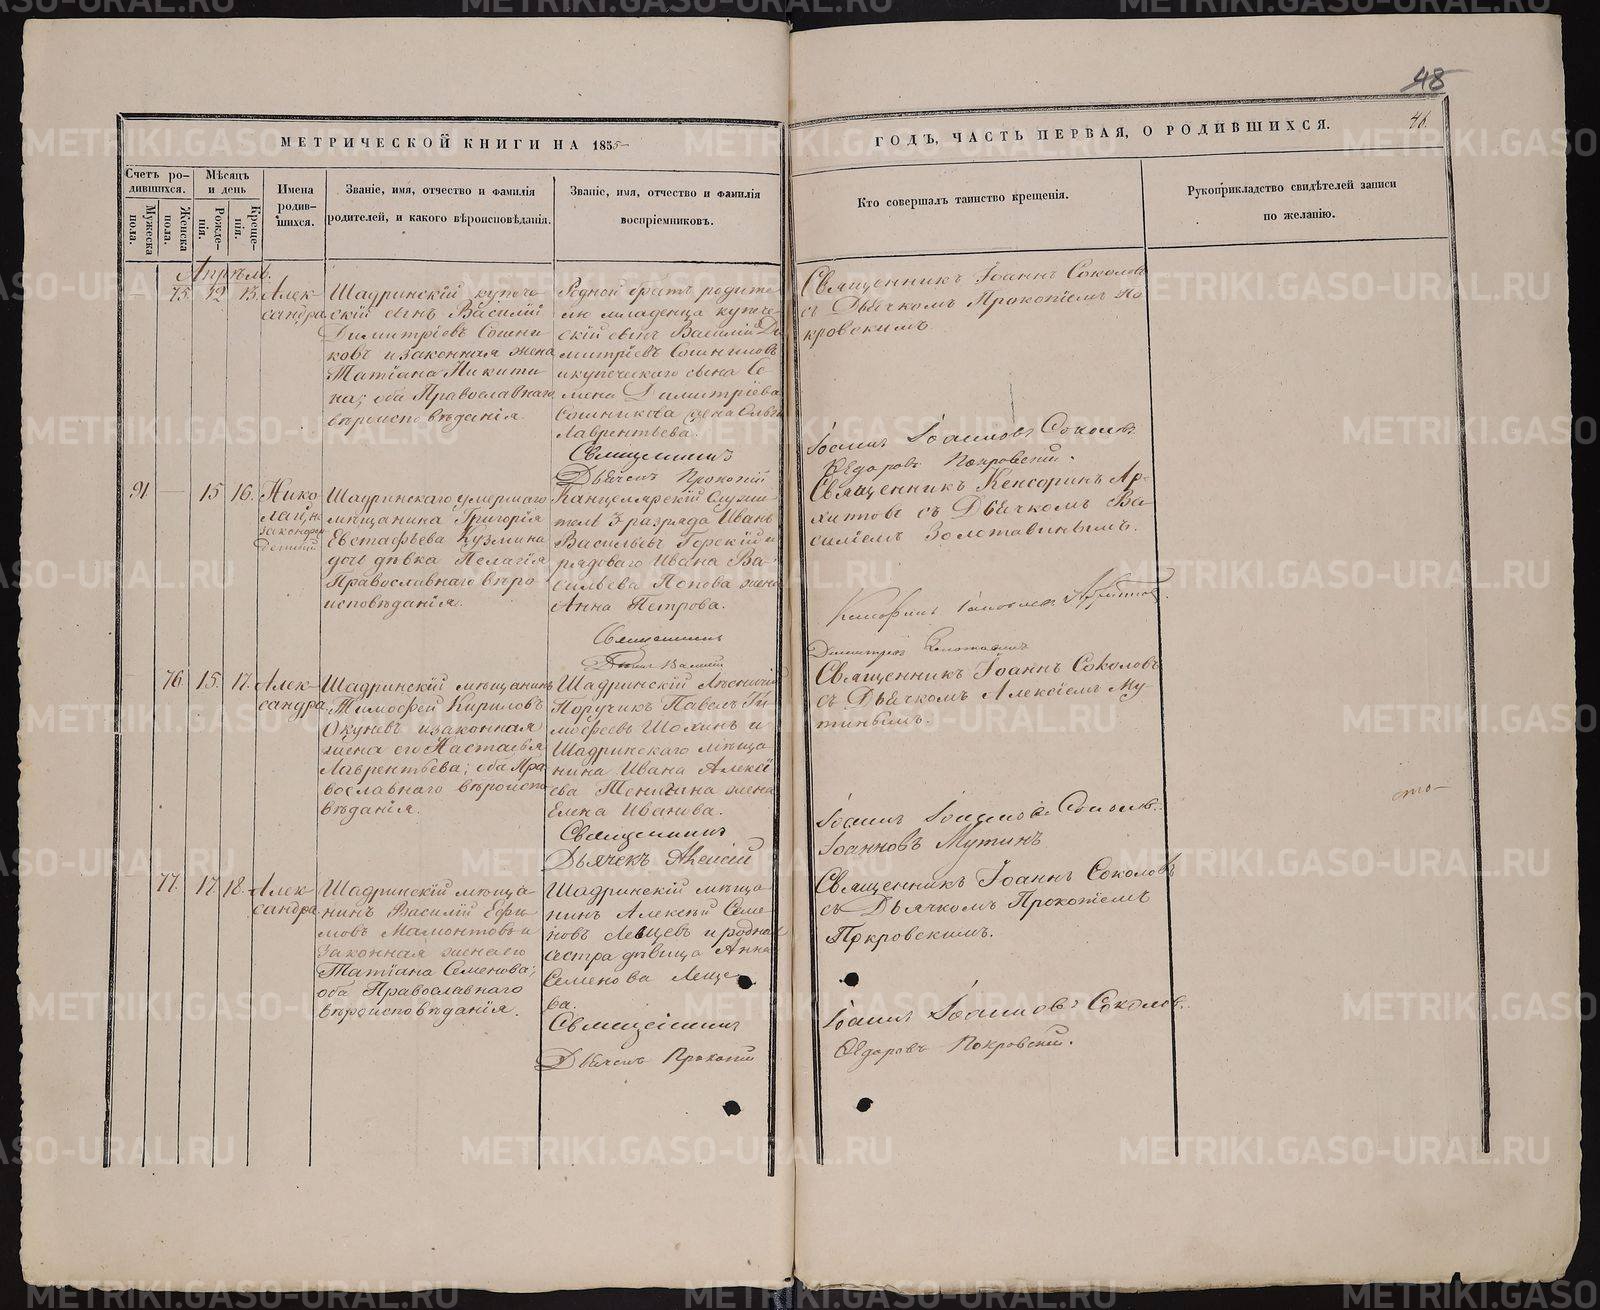 48
46.
МЕТРИЧЕСКОЙ КНИГИ НА 1855
ГОДЪ, ЧАСТЬ ПЕРВАЯ, О РОДИВШИХСЯ.
Счетъ ро-
дившихся.
Мужеска
пола.
Женска
пола.
Мѣсяцъ
и день
Рожде-
нія.
Креще-
нія.
Имена
родив-
шихся.
Званіе, имя, отчество и фамилія
родителей, и какого вѣроисповѣданія.
Званіе, имя, отчество и фамилія
воспріемниковъ.
Кто совершалъ таинство крещенія.
Рукоприкладство свидѣтелей записи
по желанію.
Апрѣль.
75. 12 13.
Алек-
сандра
Шадринскій купече-
скій сынъ Василій
Димитріевъ Сошни-
ковъ и законная жена
Татіана Никити-
на; оба Православнаго
вѣроисповѣданія.
Родной братъ родите-
лю младенца купече-
скій сынъ Василій Ди-
митріевъ Сошниковъ
и купеческаго сына Се-
мена Димитріева
Сошникова жена Ольга
Лаврентьева.
Священникъ
Дьячекъ Прокопій
Священникъ Іоаннъ Соколовъ
съ Дьячкомъ Прокопіемъ По-
кровскимъ
Іоаннъ Іоанновъ Соколовъ
Ѳедоровъ Покровскій.
91 — 15 16.
Нико-
лай, не
законорож
денный
Шадринскаго умершаго
мѣщанина Григорія
Евстафьева Кузмина
дочь дѣвка Пелагія
Православнаго вѣро-
исповѣданія.
Канцелярскій Служи-
тель 3 разряда Иванъ
Васильевъ Горскій и
рядоваго Ивана Ва-
сильева Попова жена
Анна Петрова.
Священникъ
Дьячекъ Василій
Священникъ Кенсоринъ Ар-
хитовъ съ Дьячкомъ Ва-
силіемъ Золотавинымъ.
Кенсоринъ
Димитріевъ Золотавинъ
76 15. 17.
Алек-
сандра
Шадринскій мѣщанинъ
Тимофей Кириловъ
Окуневъ и законная
жена его Настасья
Лаврентьева; оба Пра-
вославнаго вѣроиспо-
вѣданія.
Шадринскій Лѣсничій
Поручикъ Павелъ Ти-
мофеевъ Шохинъ и
Шадринскаго мѣща-
нина Ивана Алексѣ-
ева жена
Елена Иванова.
Священникъ
Дьячекъ Алексій
Священникъ Іоаннъ Соколовъ
съ Дьячкомъ Алексіемъ Му-
тинымъ.
Іоаннъ Іоанновъ Соколовъ.
Іоанновъ Мутинъ
77. 17. 18.
Алек-
сандра
Шадринскій мѣща-
нинъ Василій Ефи-
мовъ Мамонтовъ и
законная жена его
Татіана Семенова;
оба Православнаго
вѣроисповѣданія.
Шадринскій мѣща-
нинъ Алексѣй Семе-
новъ Лещевъ и родная
сестра дѣвица Анна
Семенова Леще-
ва.
Священникъ
Дьячекъ Прокопій
Священникъ Іоаннъ Соколовъ
съ Дьячкомъ Прокопіемъ
Покровскимъ.
Іоаннъ Іоанновъ Соколовъ.
Ѳедоровъ Покровскій.
METRIKI.GASO-URAL.RU